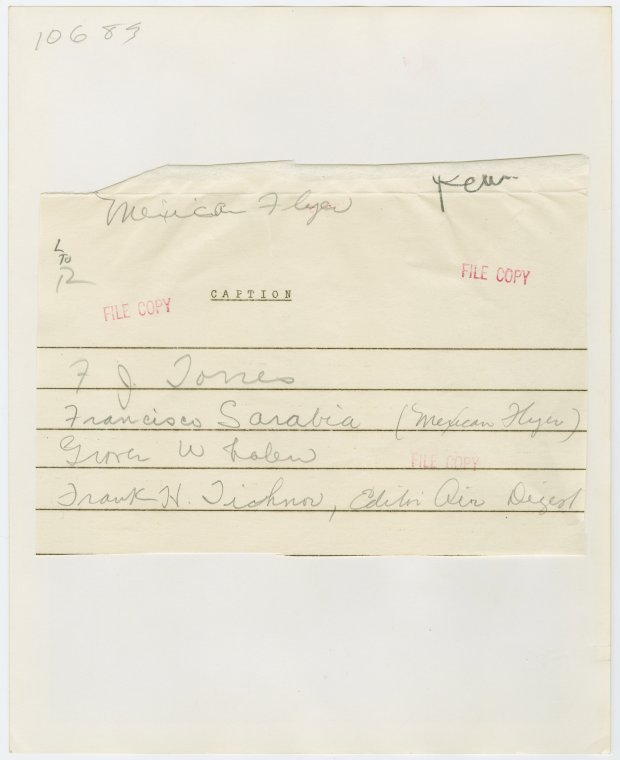 10683
Mexican Flyer
L
To
R
FILE COPY
CAPTION
FILE COPY
F J. Torres
Francisco Sarabia (Mexican Flyer)
Grover Whalen
FILE COPY
Frank H. Tichnor, Editor Air Digest